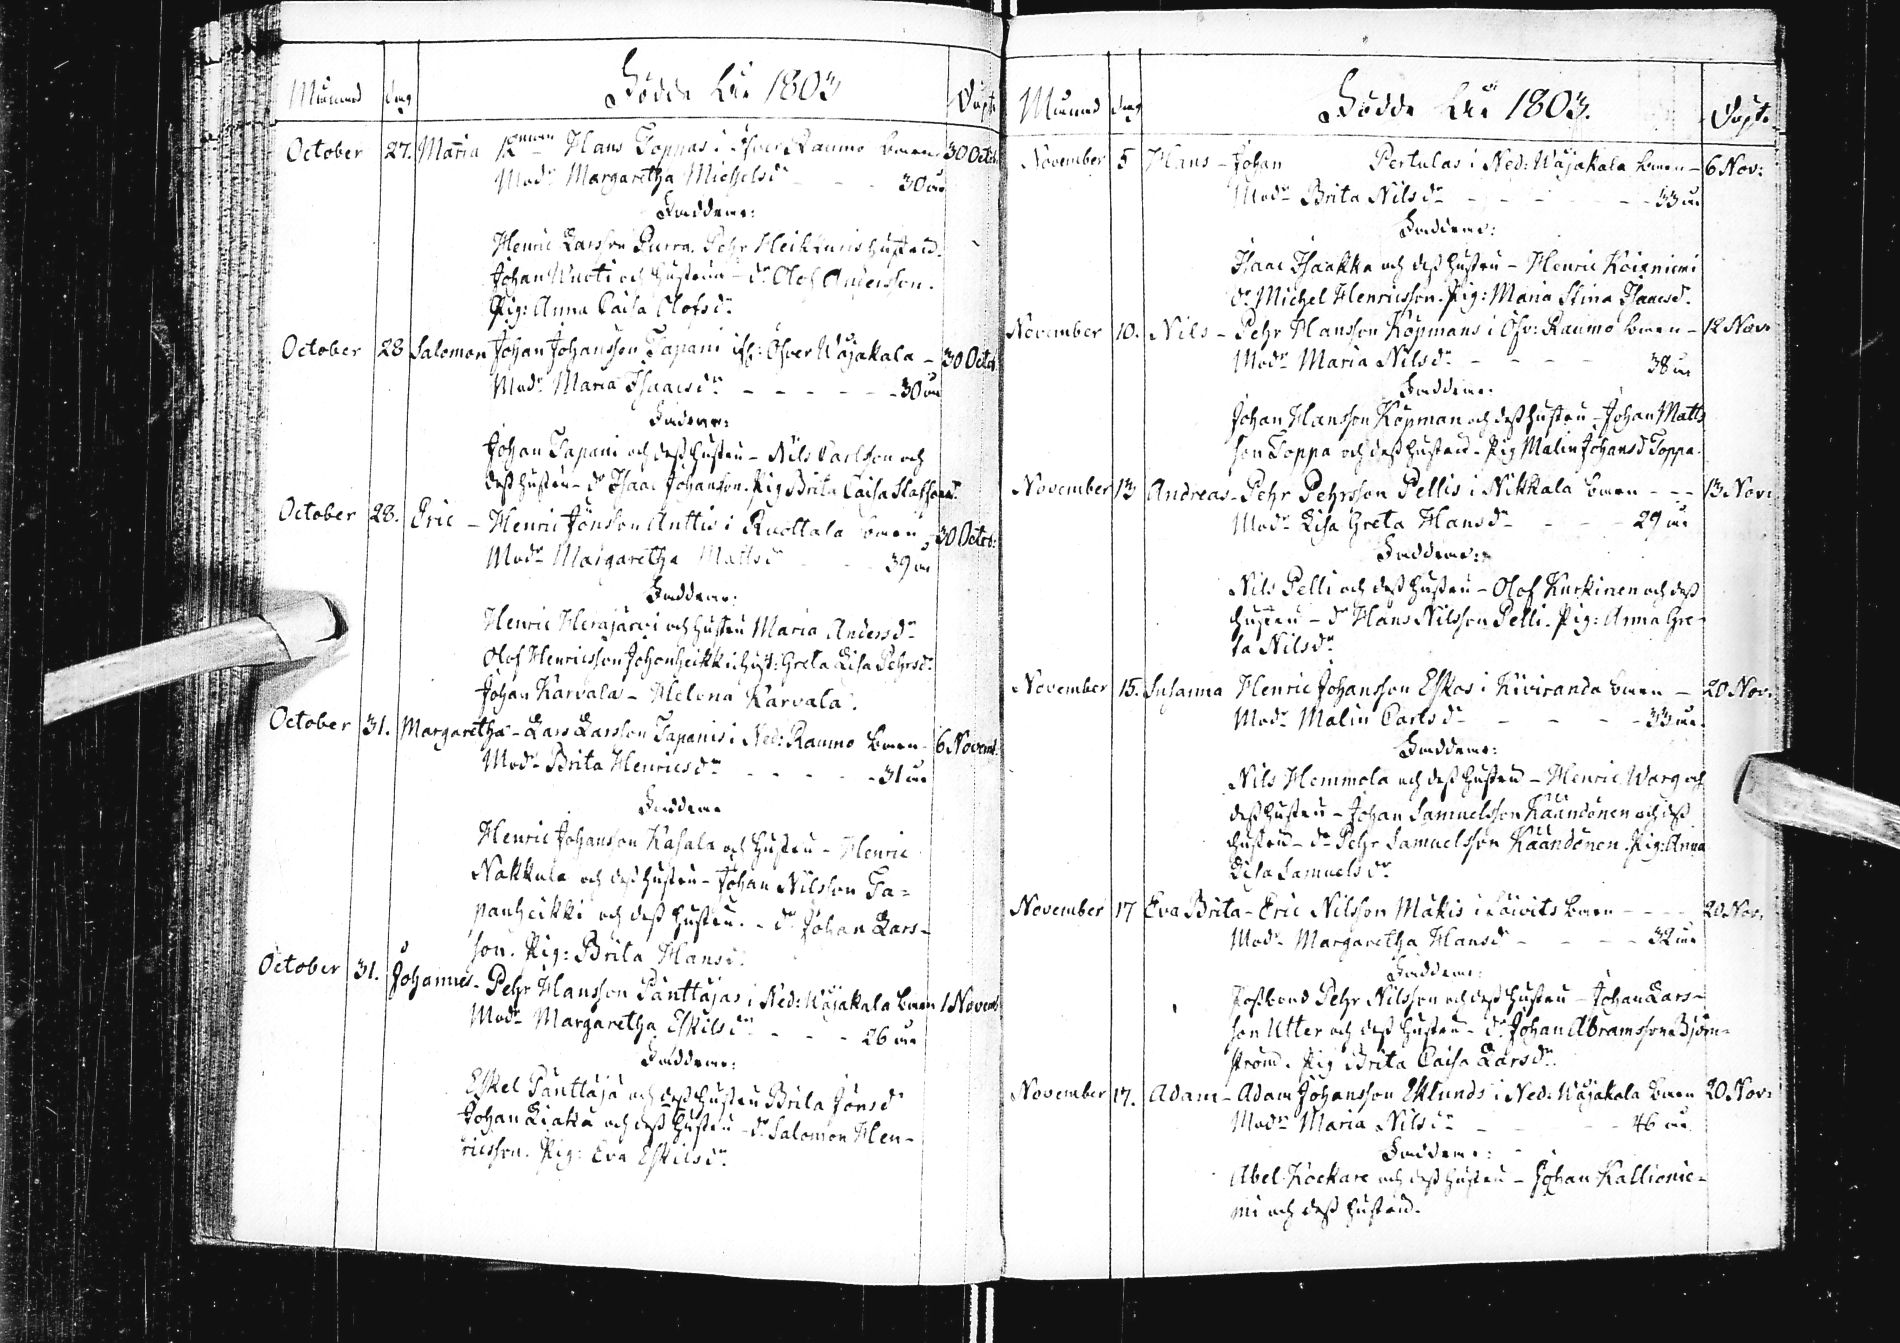 Månad dag Födde År 1803 Döpt
October 27. Maria Hans Toppas i Öfver Raumo barn 30 Octob:
Modr Margaretha Michelsdr - - - 30 år
Faddrar:
Henric Larsson Purra. Pehr Heikkuris hustrud.
Johan Wuoti och hustrun - dr Olof Andersson.
Pig: Anna Caisa Olofsdr
October 28 Salomon Johan Johansson Tapani if: Öfver Wojakala - 30 Octob
Modr Maria Isaacsdr - - - - - - 30 år
Fadrar:
Johan Tapani och dess hustru - Nils Carlsson och
dess hustru - dr Isaac Johansson. Pig Brita Caisa Staffansd.
October 28. Eric - Henric Jönsson Anttis i Ruottala barn - 30 Octob:
Modr Margaretha Mattsdr - - - 39 år
Faddrar:
Henric Herajärvi och hustru Maria Andersdr
Olof Henricsson Johonheikki hust: Greta Lisa Pehrsdr
Johan Karvala - Helena Karvala.
October 31. Margaretha - Lars Larsson Tapanis i Ned: Raumo barn - 6 Novemb
Modr Brita Henricsdr - - - - - 31 år
Faddrar
Henric Johansson Kasala och hustru - Henric
Nakkula och dess hustru - Johan Nilsson Ta=
panheikki och dess hustru. - dr Johan Lars-
son. Pig: Brita Hansd.
October 31. Johannes - Pehr Hansson Pänttäjas i Ned: Wojakala barn 1 Novemb
Modr Margaretha Eskilsdr - - - 26 år
Faddrar:
Eskel Pänttäjä och dess hustru Brita Jönsdr
Johan Liakka och dess hustru - dr Salomon Hen-
ricsson. Pig: Eva Eskilsdr.
Månad dag Födde År 1803. Döpt.
November 5 Hans - Johan Pertulas i Ned: Wojakala barn - 6 Nov:
Modr Brita Nilsdr - - - - - - - 33 år
Faddrar:
Isaac Isaakka och dess hustru - Henric Koisniemi
dr Michel Henricsson. Pig: Maria Stina Isaacsd.
November 10. Nils - Pehr Hansson Köpmans i Öfv: Raumo barn - 12 Nov:
Modr Maria Nilsdr - - - - - 38 år
Faddrar.
Johan Hansson Köpman och dess hustru - Johan Matts
son Toppa och dess hustrud. Pig Malin Johansd Toppa.
November 13 Andreas - Pehr Pehrsson Pellis i Nikkala barn - - - 13 Nov:
Modr Lisa Greta Hansdr - - - - 29 år
Faddrar:
Nils Pelli och dess hustru - Olof Kurkinen och dess
hustru - dr Hans Nilsson Pelli. Pig: Anna Gre-
ta Nilsdr
November 15. Susanna Henric Johansson Eskos i Kiviranda barn - 20 Nov:
Modr Malin Carlsdr - - - - - 33 år.
Faddrar:
Nils Hemmola och dess hustrud - Henric Warg och
dess hustru - Johan Samuelsson Käändönen och dess
hustru - dr Pehr Samuelsson Käändönen. Pig: Anna
Lisa Samuelsdr
November 17 Eva Brita - Eric Nilsson Mäkis i Säivits barn - - - 20 Nov:
Modr Margaretha Hansdr - - - - 32 år
Faddrar:
Postbond Pehr Nilsson och dess hustru - Johan Lars-
son Utter och dess hustru - dr Johan Abramsson Björn-
ström. Pig Brita Caisa Larsdr.
November 17. Adam - Adam Johansson Eklunds i Ned: Wojakala barn 20 Nov:
Modr Maria Nilsdr - - - - 46 år
Faddrar:
Abel Kockare och dess hustru - Johan Kallionie-
mi och dess hustrud.